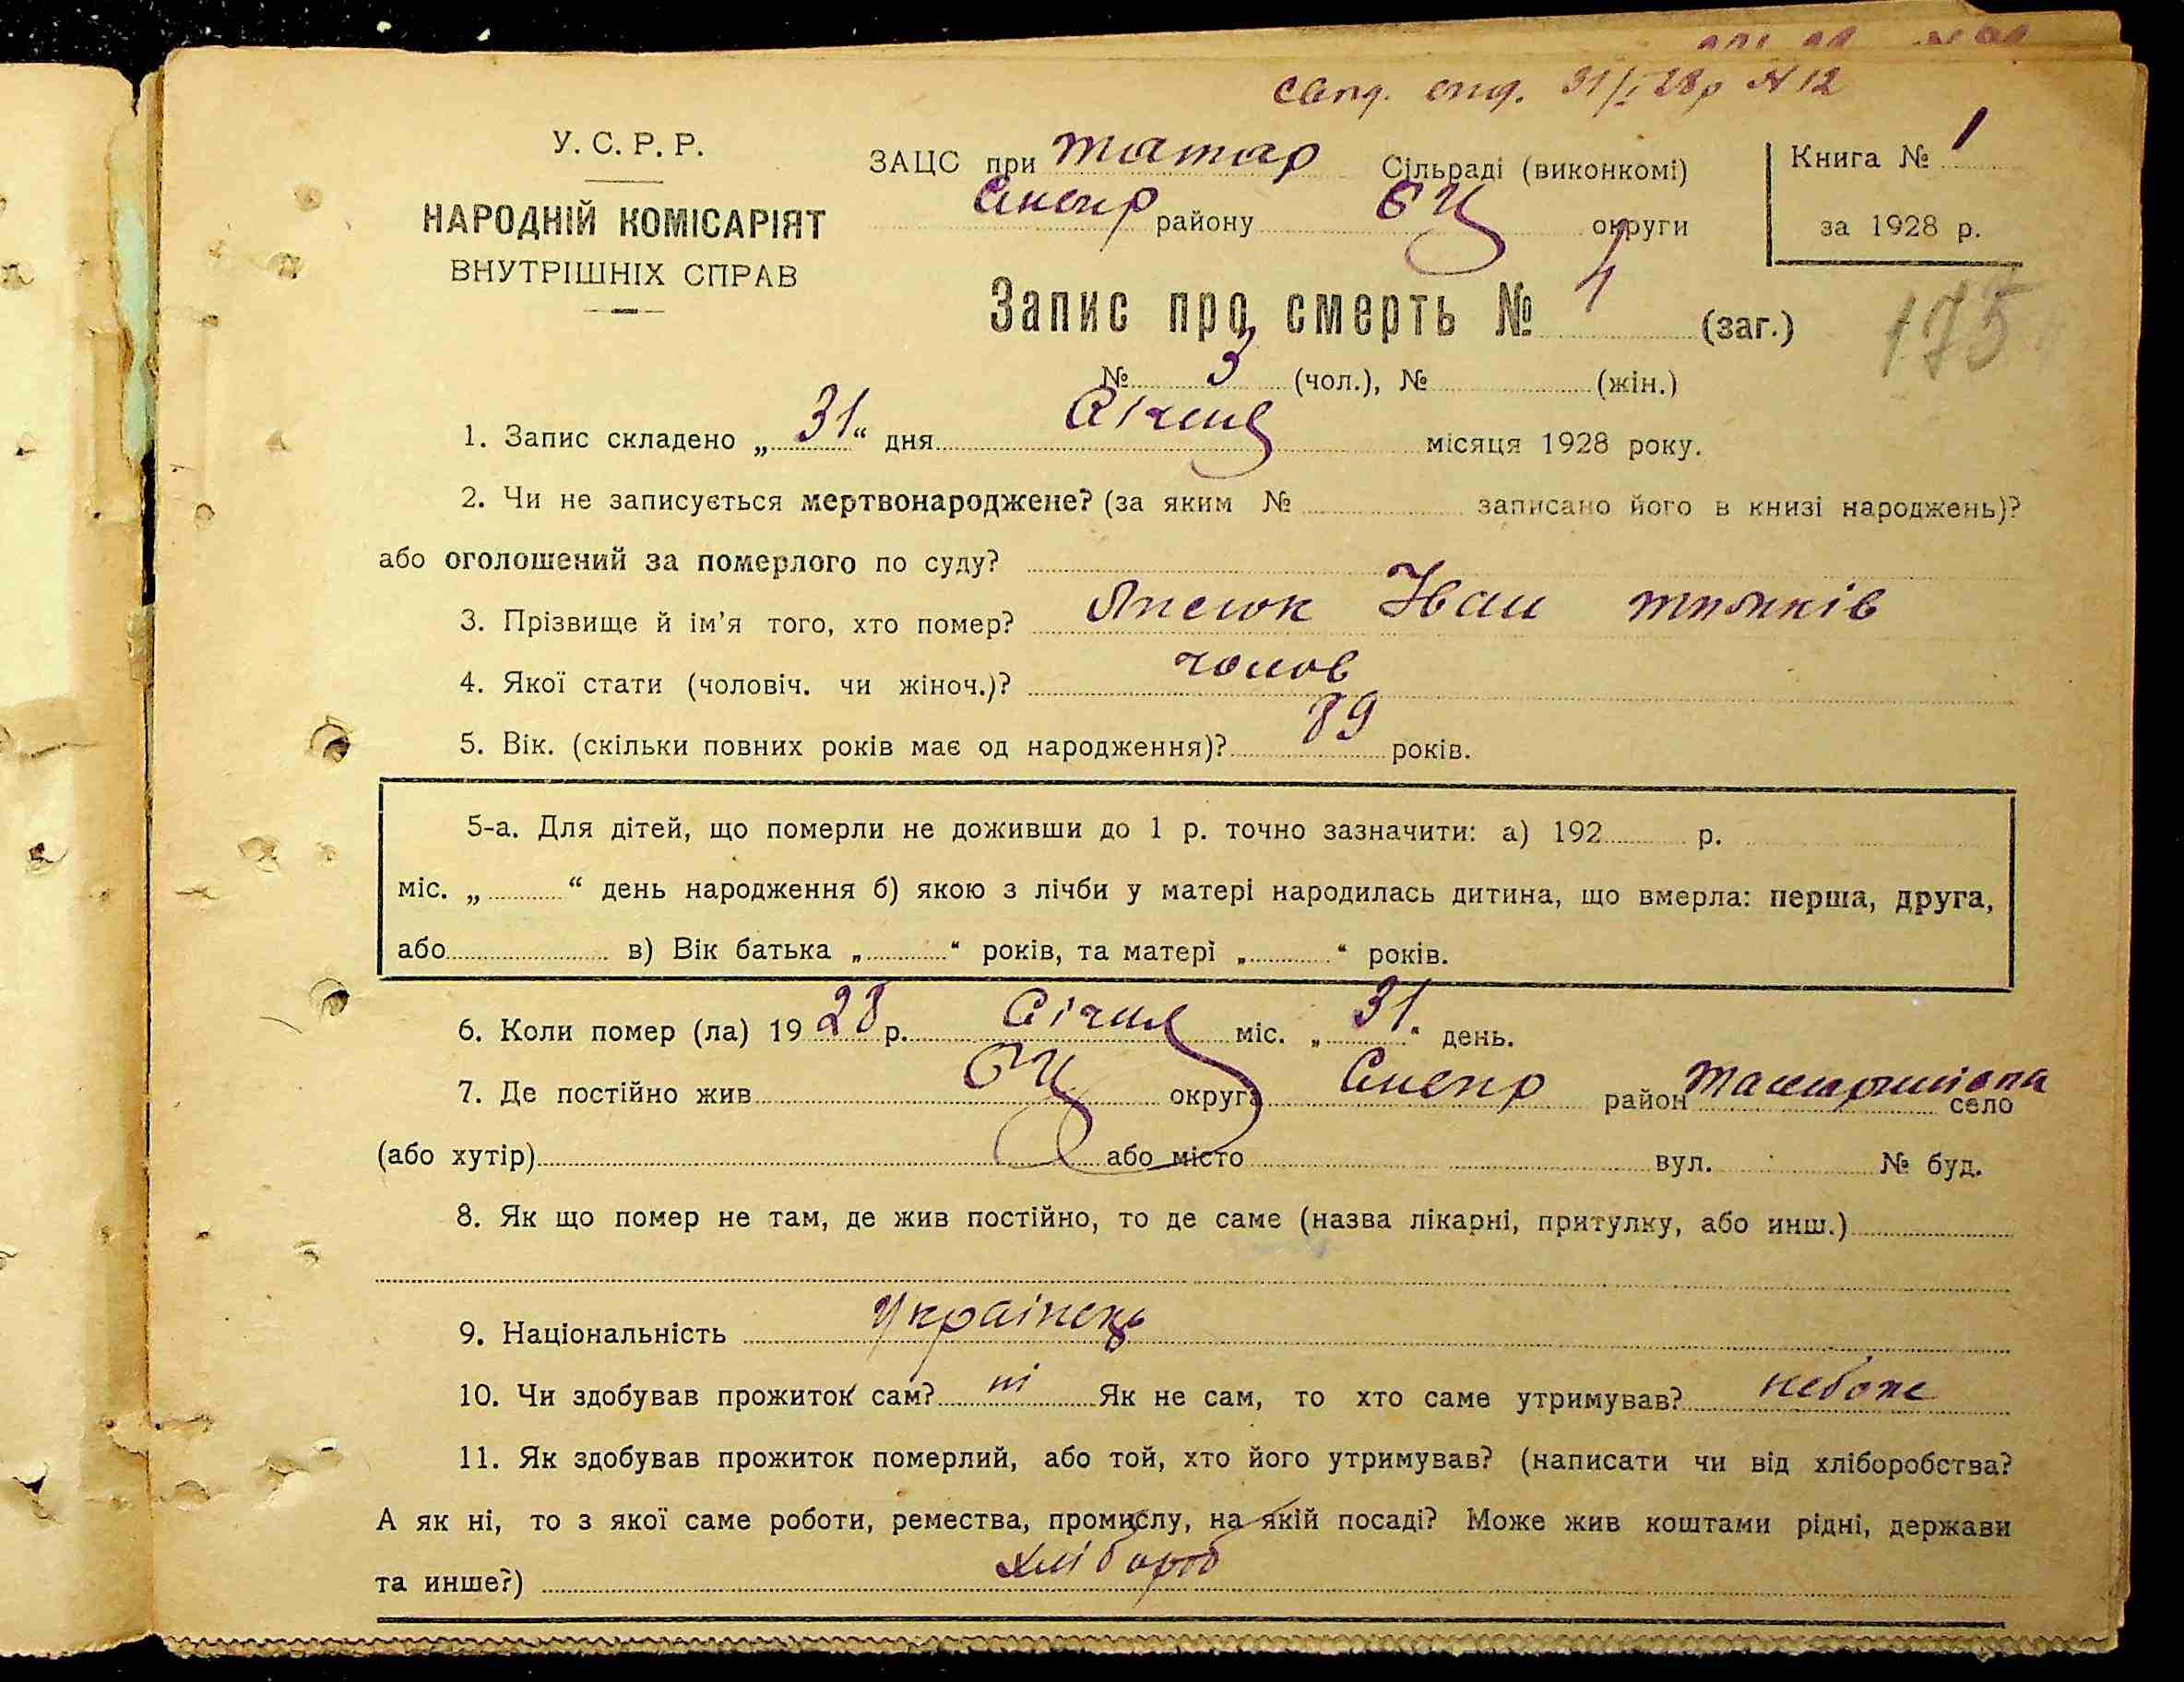 31/I 28р №12
У. С. Р. Р.
НАРОДНІЙ КОМІСАРІЯТ
ВНУТРІШНІХ СПРАВ
ЗАЦС при Татар Сільраді (виконкомі)
району округи
Книга № 1
за 1928 р.
Запис про смерть № 4 (заг.)
175
№ 3 (чол.), № (жін.)
1. Запис складено „ 31 “ дня Січня місяця 1928 року.
2. Чи не записується мертвонароджене? (за яким № записано його в книзі народжень)?
або оголошений за померлого по суду?
3. Прізвище й ім'я того, хто помер? Іван
4. Якої стати (чоловіч. чи жіноч.)? чолов
5. Вік. (скільки повних років має од народження)? 89 років.
5-а. Для дітей, що померли не доживши до 1 р. точно зазначити: а) 192 р.
міс. „ “ день народження б) якою з лічби у матері народилась дитина, що вмерла: перша, друга,
або в) Вік батька „ “ років, та матері „ “ років.
6. Коли помер (ла) 19 28 р. Січня міс. „ 31 “ день.
7. Де постійно жив округа район село
(або хутір) або місто вул. № буд.
8. Як що помер не там, де жив постійно, то де саме (назва лікарні, притулку, або инш.)
9. Національність Українець
10. Чи здобував прожиток сам? ні Як не сам, то хто саме утримував? небоже
11. Як здобував прожиток померлий, або той, хто його утримував? (написати чи від хліборобства?
А як ні, то з якої саме роботи, ремества, промислу, на якій посаді? Може жив коштами рідні, держави
та инше?) хлібороб